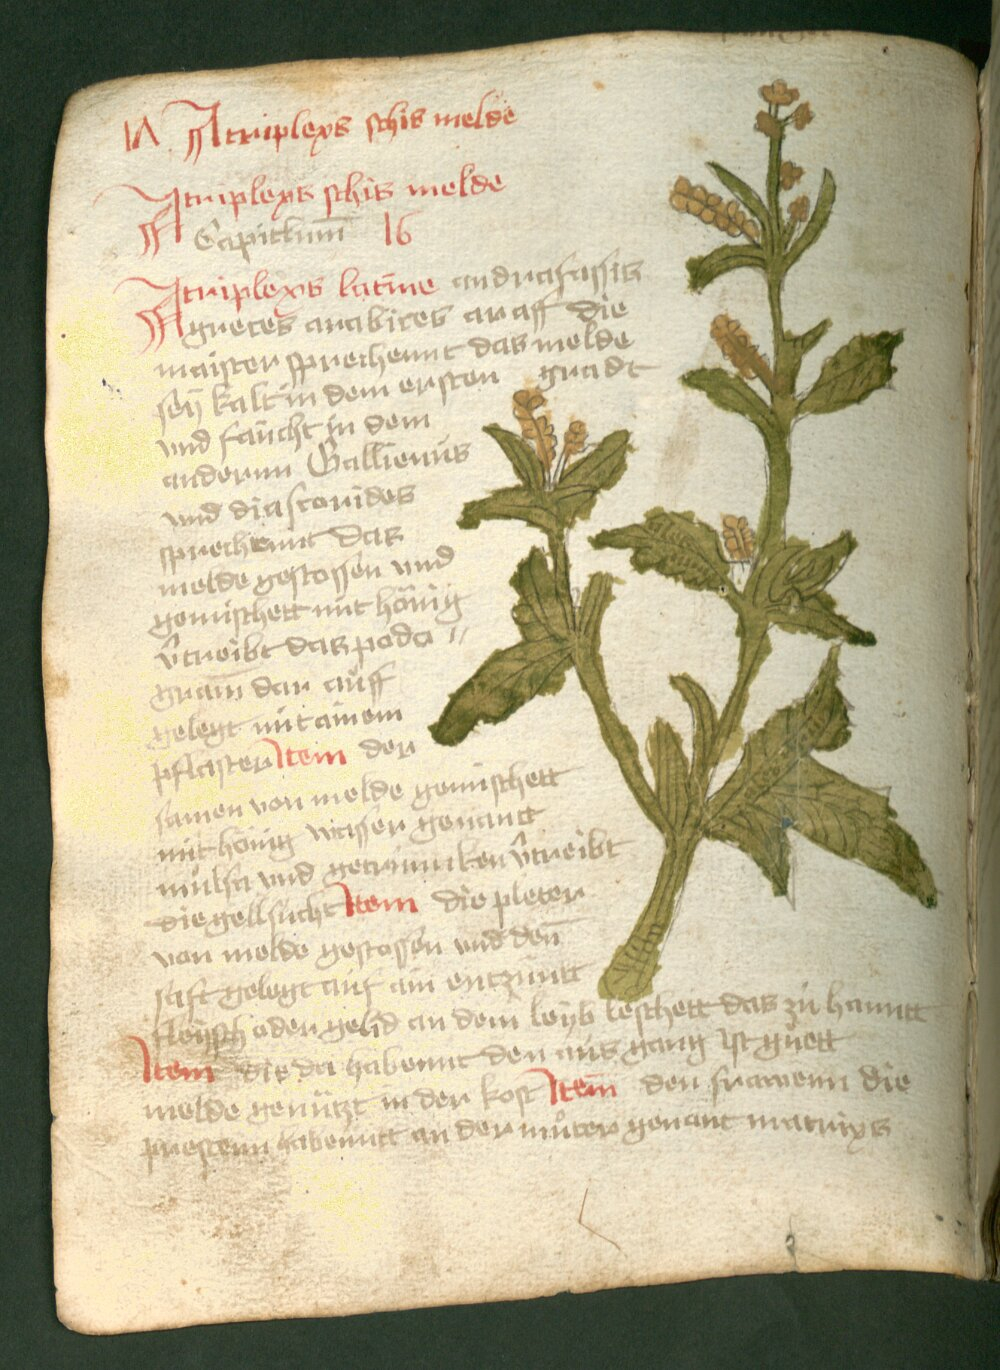 Atriplexs schis melde
Atriplexs schis melde
Capittlum̄ 16
Atriplexs latine andrafassis
greces arabices araff die
maister sprechennt das melde
seÿ kalt in dem ersten gradt
vnd faücht in dem
andernn Gallienüs
vnd diascorides
sprechennt das
melde gestossen vnd
gemischett mit hönig
v̄treibt das poda //
gram̄ dar auff
gelegt mit ainem
pflaster Item der
samen von melde gemischett
mit hönig wasser genantt
mülsa vnd getrunnken v̄treibt
die gellsücht Item die pleter
von melde gestossen vnd den̄
saft gelegt auf ain entzüntt
fleysch oder gelid an dem leÿb leschett das zü hanntt
Item die da habennt den aüs gang ist güett
melde genützt in der kost Item den frawenn die
prestenn habenntt an der müter genant matrixs